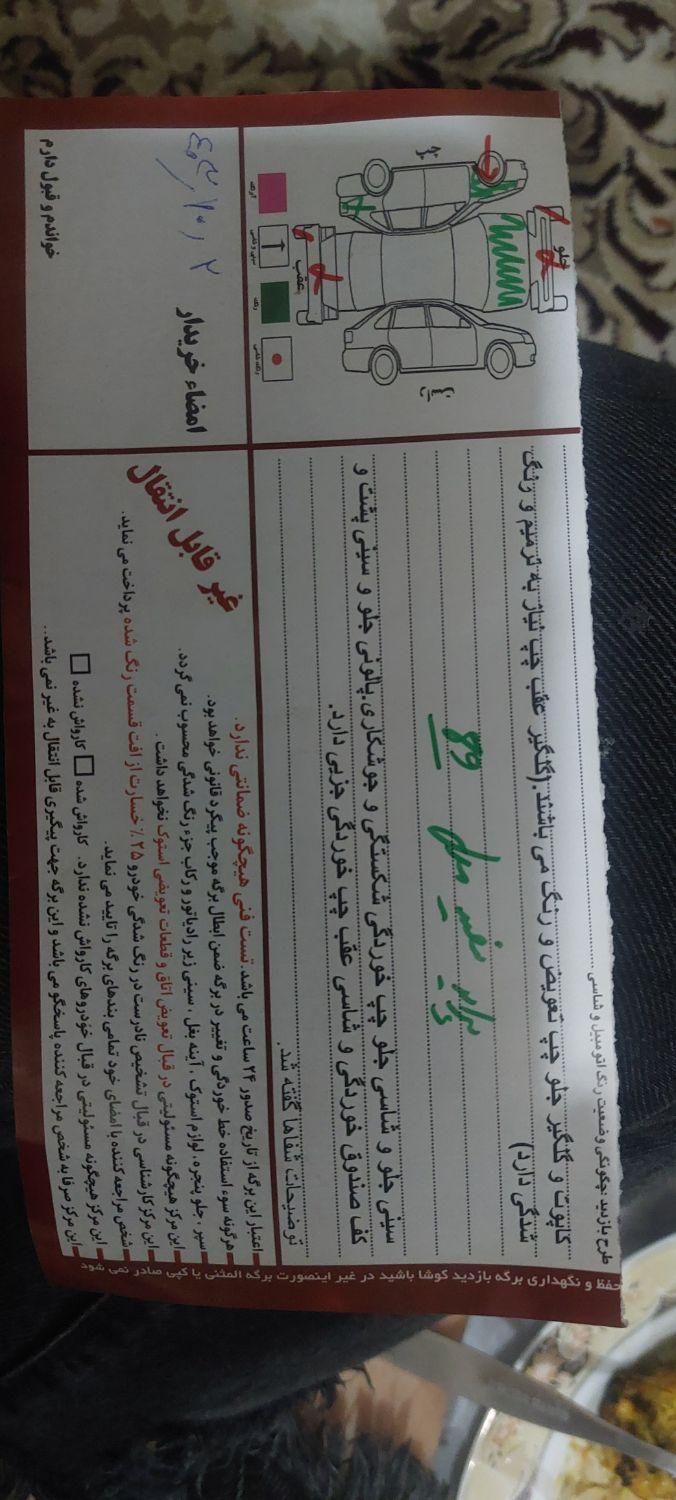 طرح بازدید چگونگی وضعیت رنگ اتومبیل و شاسی
کاپوت و گلگیر جلو چپ تعویض و رنگ می باشند.(گلگیر عقب چپ نیاز به ترمیم و رنگ
شدگی دارد)
پراید سفید مدل 89
سینی جلو و شاسی جلو چپ خوردگی شکستگی و جوشکاری.پالونی جلو و سینی پشت و
کف صندوق خوردگی و شاسی عقب چپ خوردگی جزیی دارد.
توضیحات شفاها گفته شد.
جلو
عقب
رنگ
امضاء خریدار
خواندم و قبول دارم
غیر قابل انتقال
اعتبار این برگه از تاریخ صدور ۲۴ ساعت می باشد. تست فنی هیچگونه ضمانتی ندارد.
هرگونه سوء استفاده خط خوردگی و تغییر در برگه ضمن ابطال برگه موجب پیگرد قانونی خواهد بود.
سپر ، جلو پنجره ، لوازم استوک ، آینه بغل ، سینی زیر رادیاتور و رکاب جزء رنگ شدگی محسوب نمی گردد.
این مرکز هیچگونه مسئولیتی در قبال تعویض اتاق و قطعات تعویضی استوک نخواهد داشت.
این مرکز کارشناسی در قبال تشخیص نادرست در رنگ شدگی خودرو ۲۵٪ خسارت از افت قسمت رنگ شده پرداخت می نماید.
شخص مراجعه کننده با امضای خود تمامی بندهای برگه را تایید می نماید.
این مرکز هیچگونه مسئولیتی در قبال خودروهای کارواش نشده ندارد. کارواش شده □ کارواش نشده □
این مرکز صرفا به شخص مراجعه کننده پاسخگو می باشد و این برگه جهت پیگیری قابل انتقال به غیر نمی باشد..
حفظ و نگهداری برگه بازدید کوشا باشید در غیر اینصورت برگه المثنی یا کپی صادر نمی شود